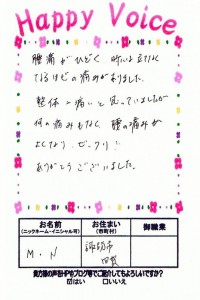 Happy Voice
腰痛がひどく 明いは立てなく
なるほどの痛みがありました。
整体=痛いと思っていましたが
何の痛みもなく、腰の痛みが
よくなり、ビックリ！
ありがとうございました。
お名前
(ニックネーム・イニシャル可)
お住まい
(市町村)
御職業
M.N
諏訪市
四賀
貴方様の声をHPやブログ等でご紹介してもよろしいですか？
☑はい □いいえ